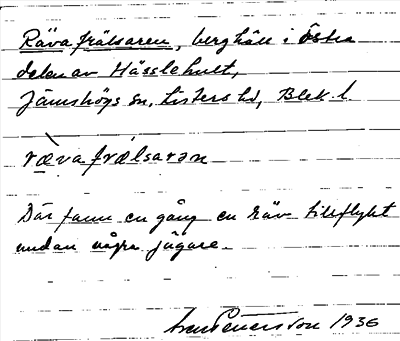 Rävafrälsaren, berghåll i Östra
delen av Hässlehult,
Jämshögs sn, Listers hd, Blek. l.
ræ̀vafrǽlsarən
Där fann en gång en räv tillflykt
undan några jägare.
1936